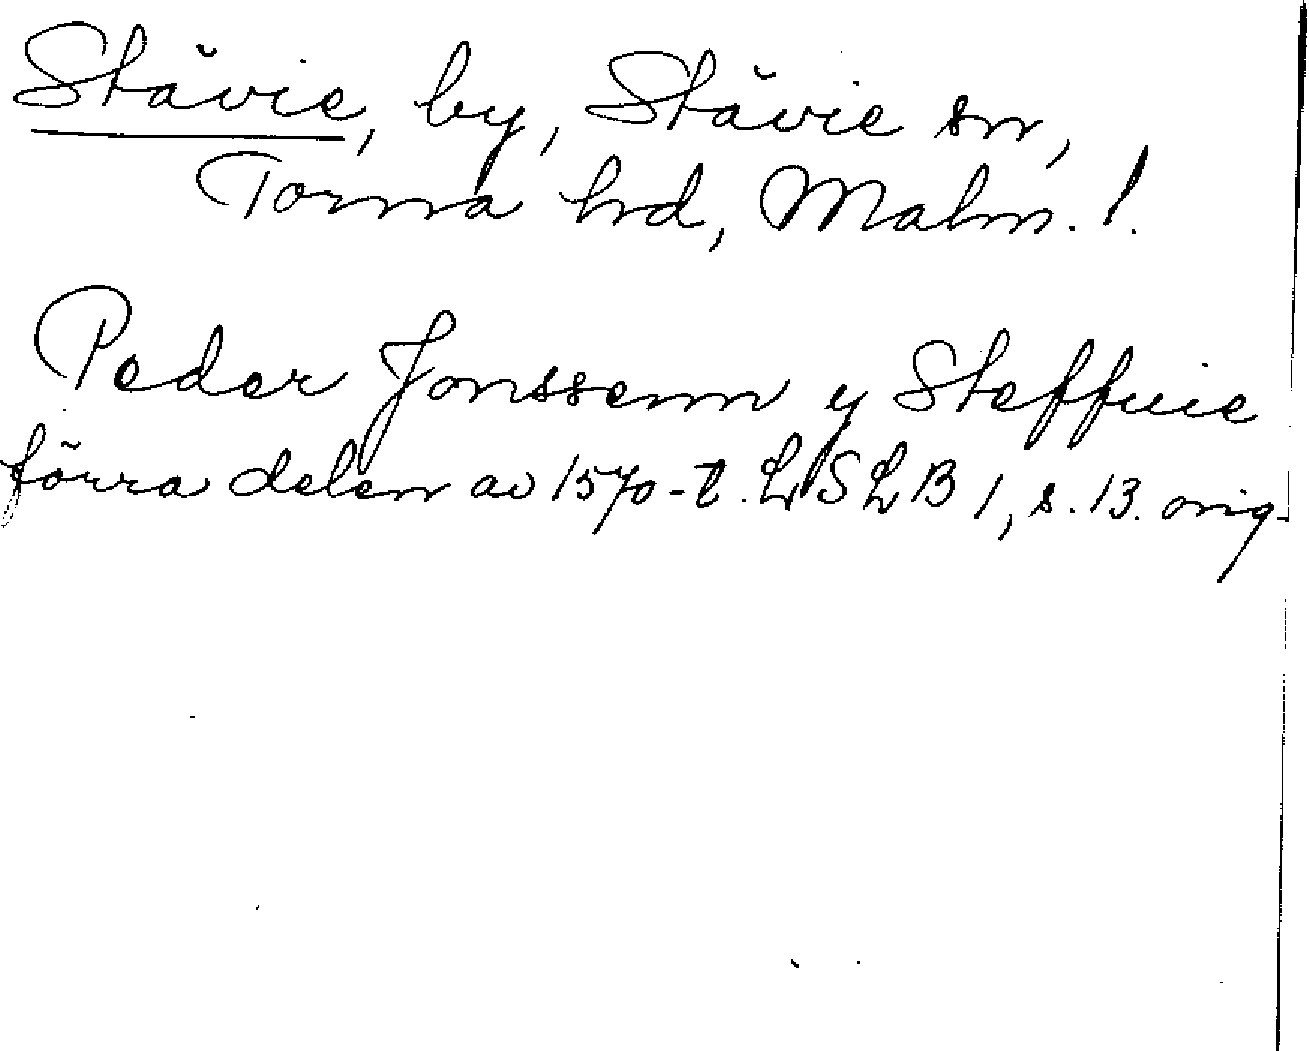 Stävie, by, Stävie sn,
Torna hd, Malm. l.
Peder Jonssenn y Steffuie
förra delen av 1570-t. LSLB 1, s. 13. orig.